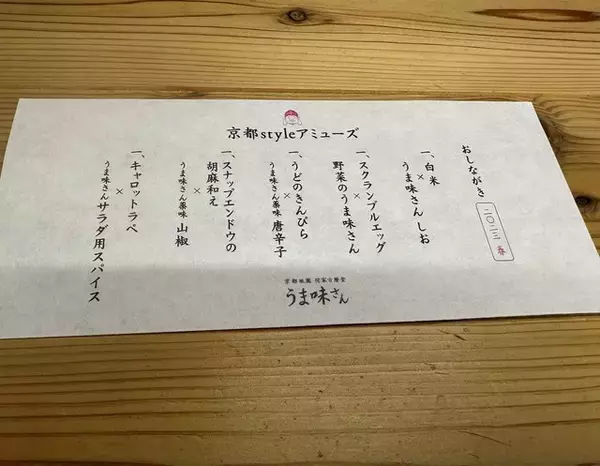 京都styleアミューズ
おしながき
二〇二三 春
一、白米
×
うま味さん しお
一、スクランブルエッグ
×
野菜のうま味さん
一、うどのきんぴら
×
うま味さん薬味 唐辛子
一、スナップエンドウの
胡麻和え
×
うま味さん薬味 山椒
一、キャロットラペ
×
うま味さんサラダ用スパイス
うま味さん